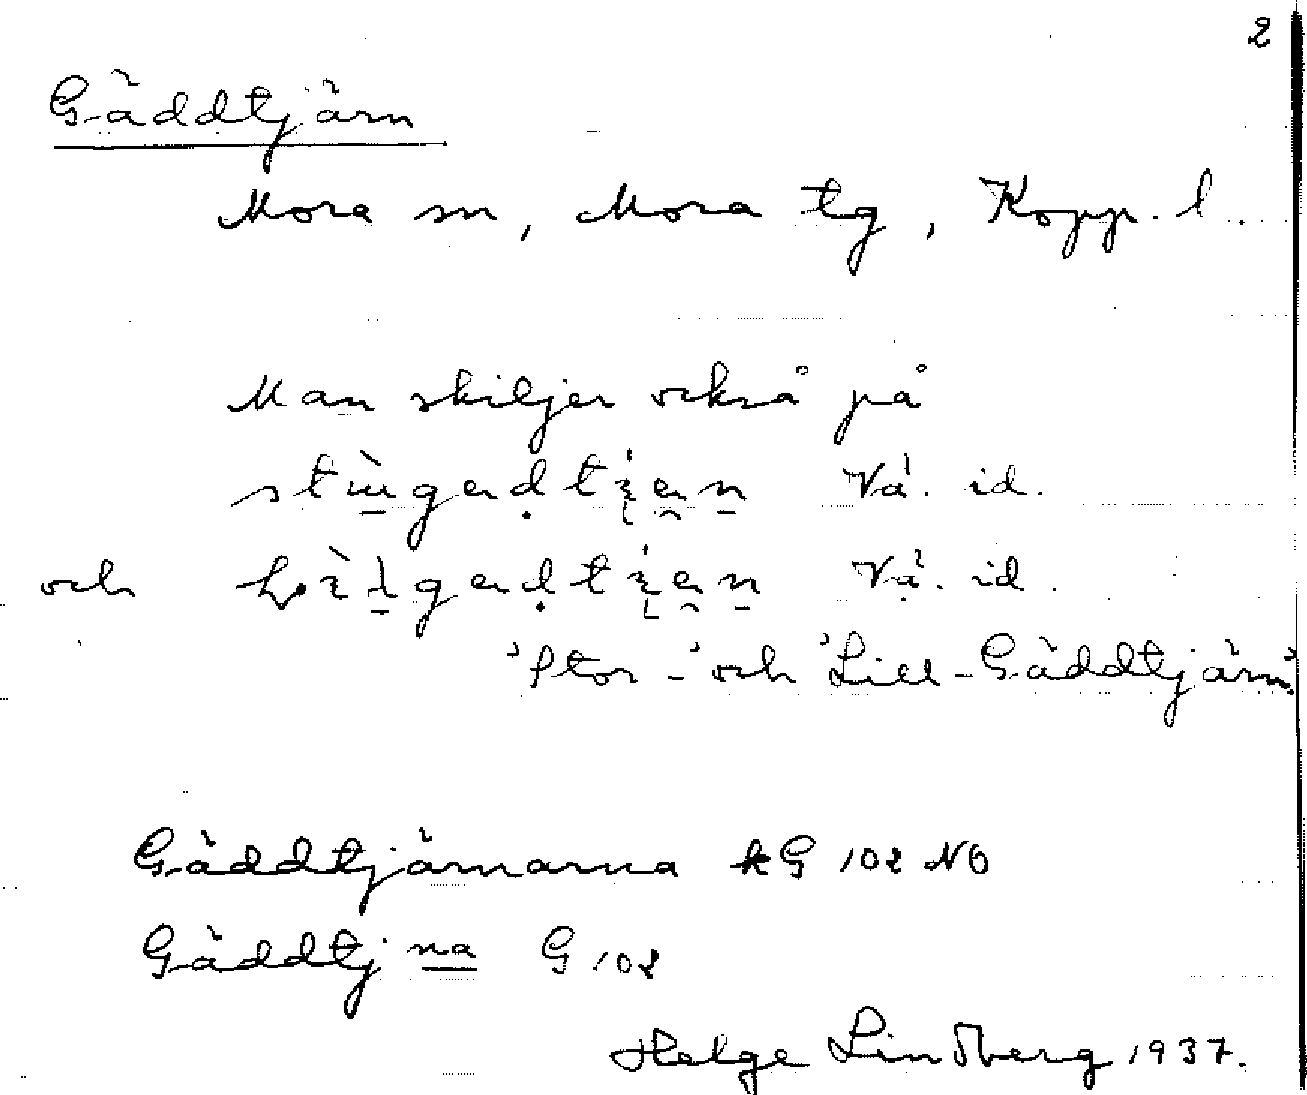 2
Gäddtjärn
Mora sn, Mora tg, Kopp. l.
Man skiljer också på
Vä. id.
och Vä. id.
'Stor-' och 'Lill-Gäddtjärn'
Gäddtjärnarna kG 102 NO
Gäddtj na G 102
Helge Lindberg 1937.